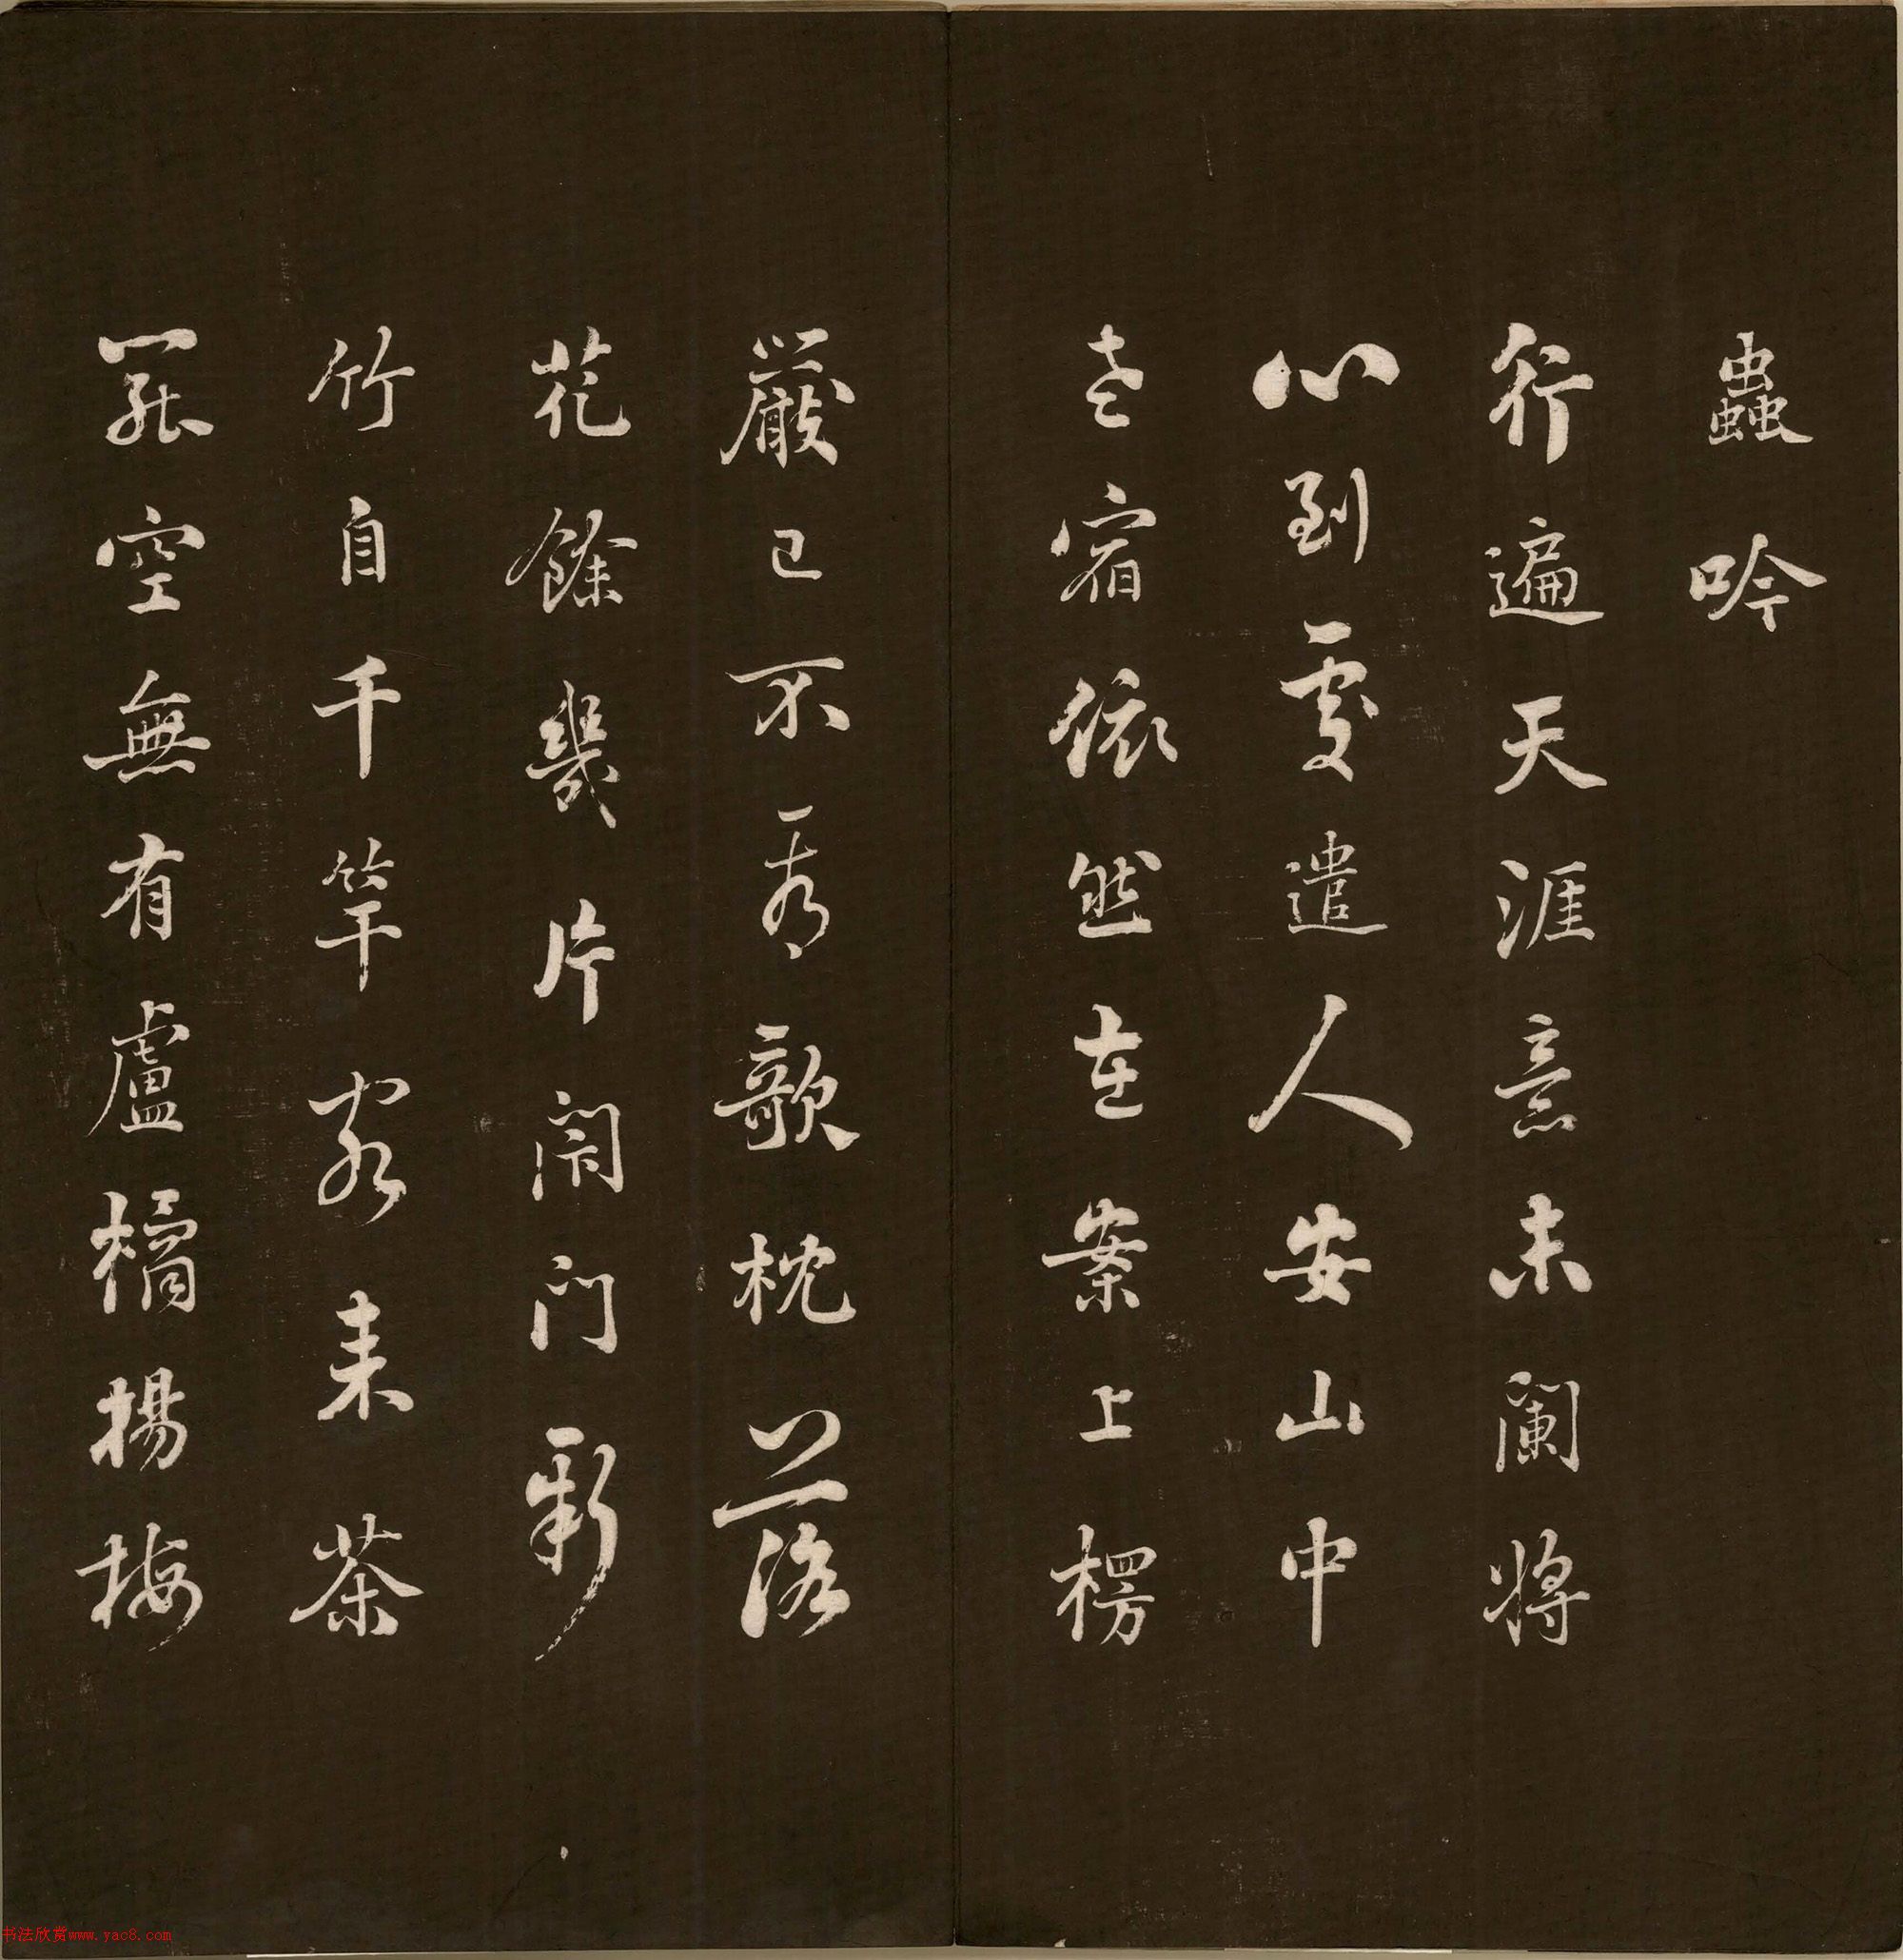 蟲吟
行遍天涯意未闌將
心到處遣人安山中
老宿依然在案上楞
嚴已不看欹枕落
花餘幾片閉門新
竹自千竿客來茶
罷空無有盧橘楊梅
书法欣赏www.yac8.com